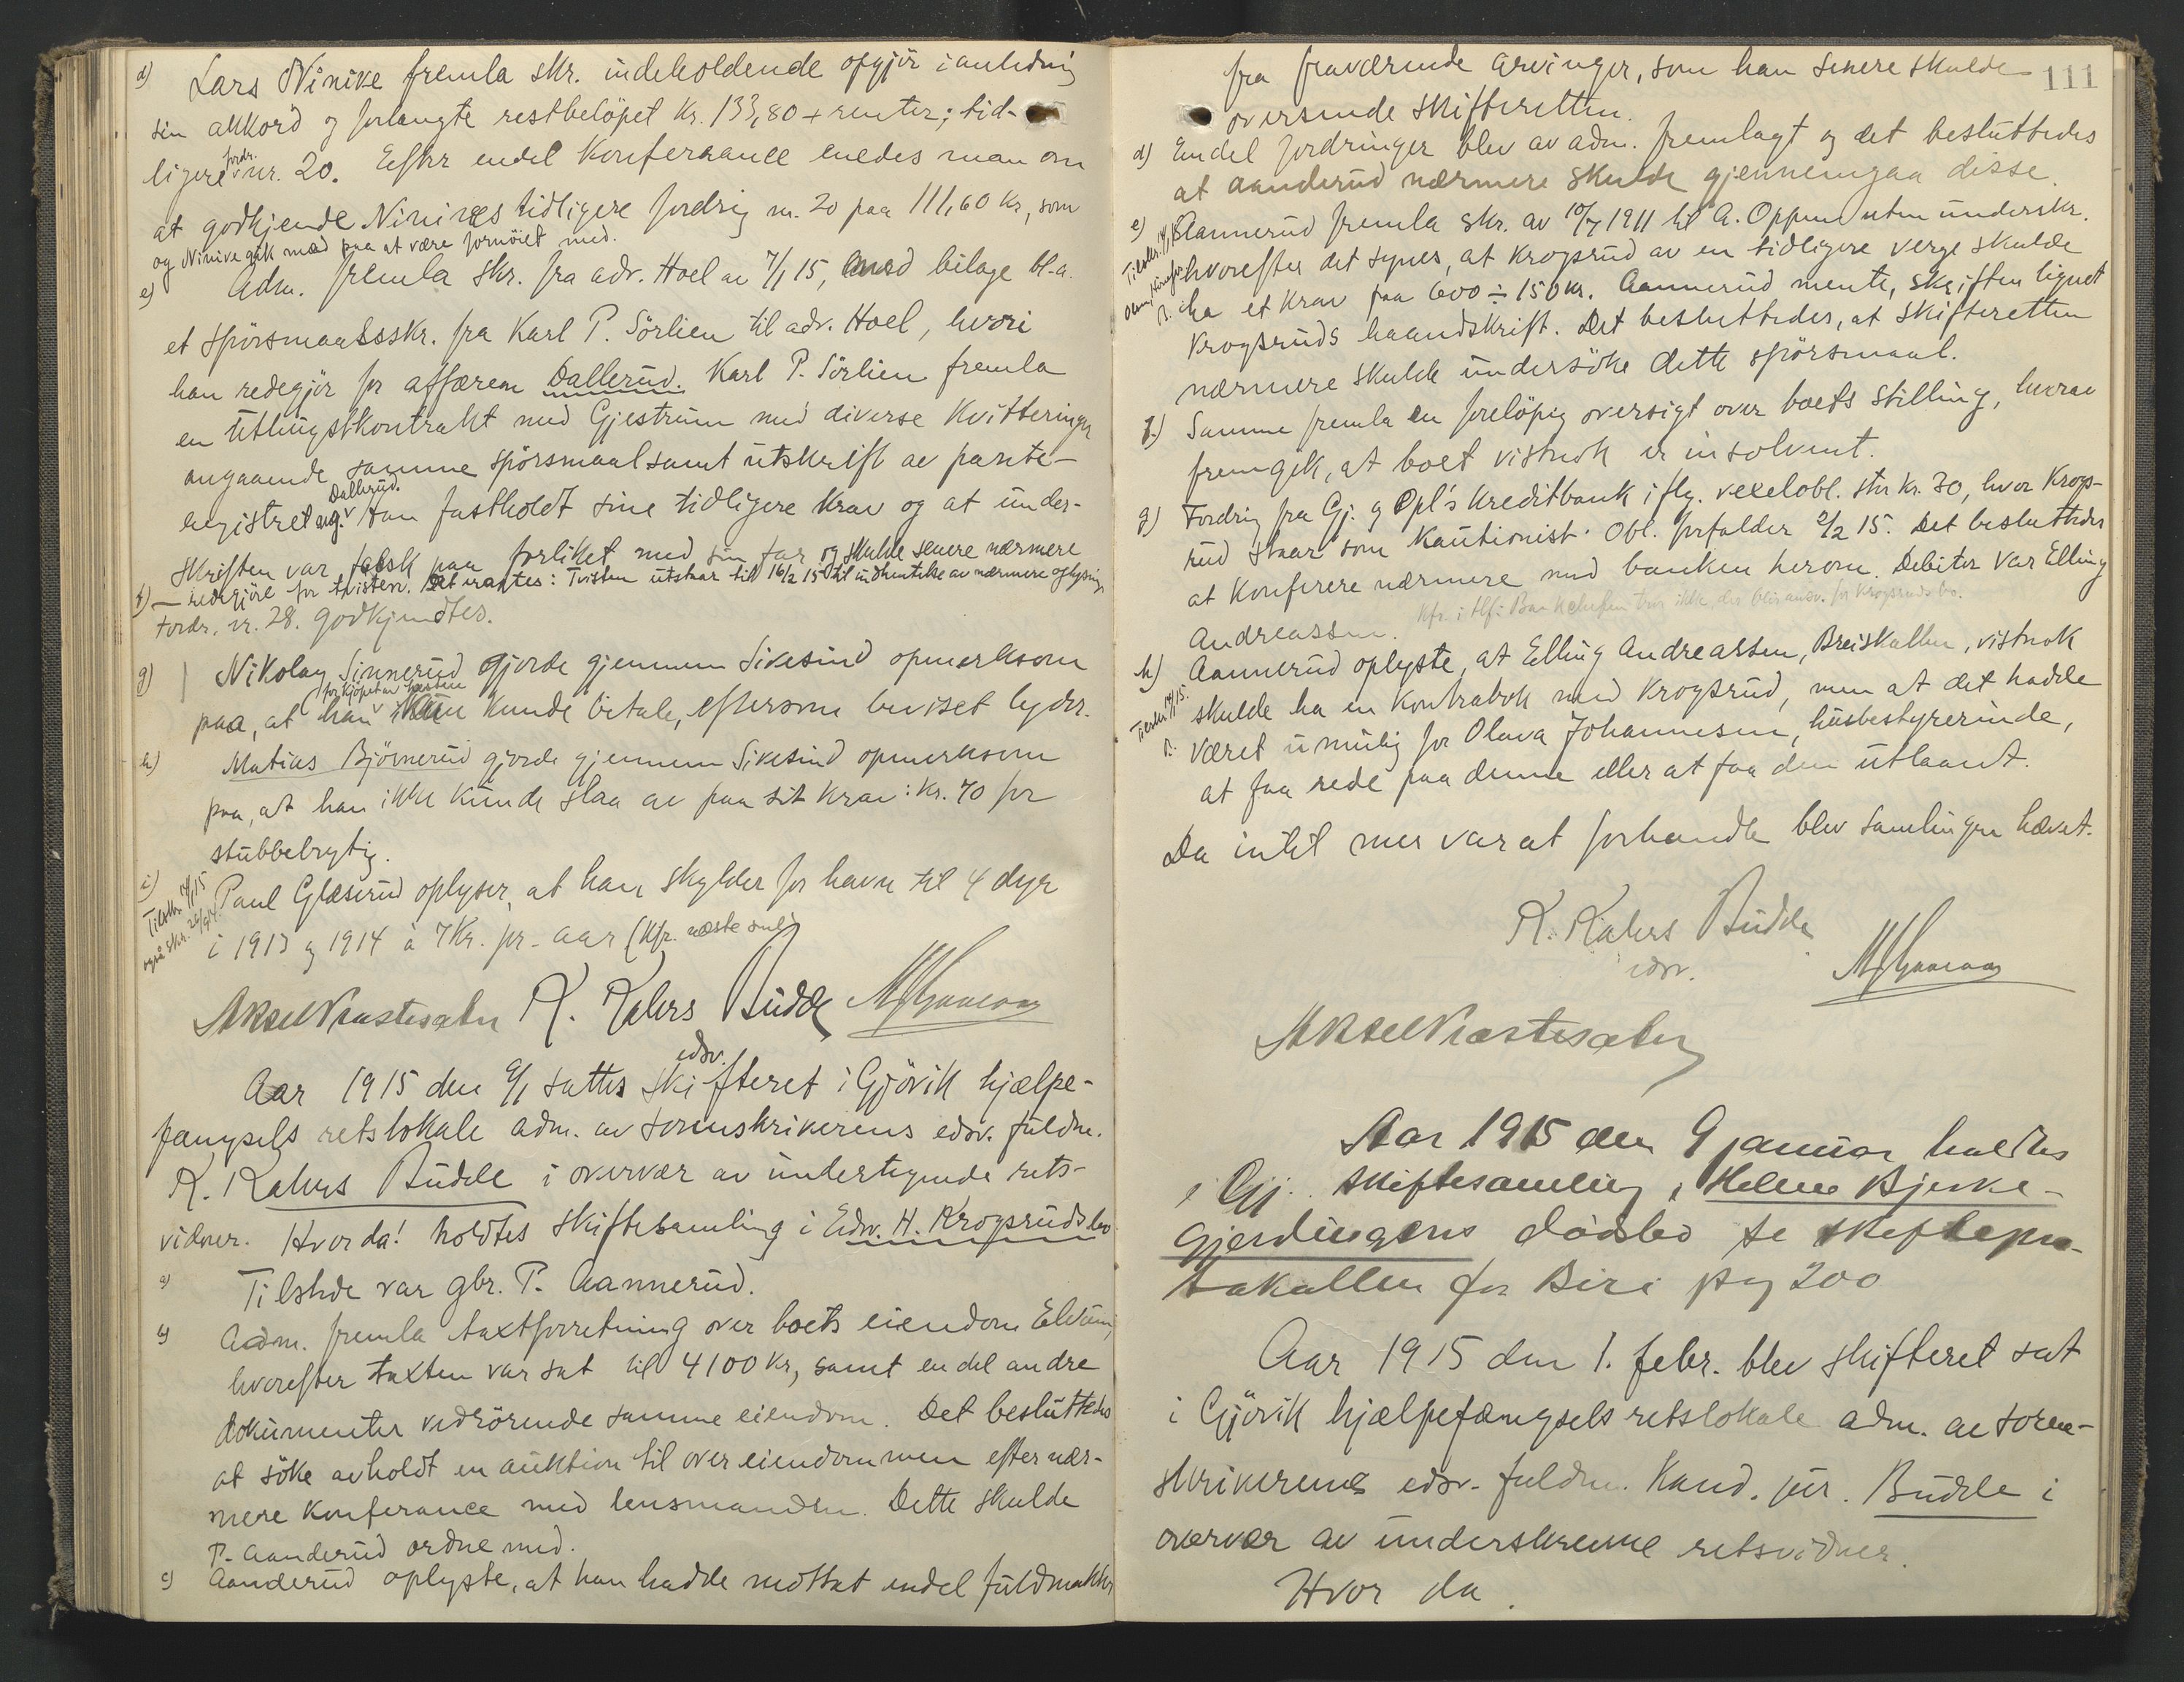 d) Lars Ninive fremla skr. indeholdende opgjör i anledning
sin akkord og forlangte restbelöpet kr. 133,80 + renter; tid-
ligere fordr. nr. 20. Efter endel konferance enedes man om
at godkjende Ninives tidligere fordrig nr. 20 paa 111,60 kr, som
og Ninive gik med paa at være fornöiet med.
e) Adm. fremla skr. fra adv. Hoel av 7/1 15, med bilage bl.a.
et spörsmaalsskr. fra Karl P. Sörlien til adv. Hoel, hvori
han redegjör for affæren Dallerud. Karl P. Sörlien fremla
en utlingskontrakt med Gjestrum med diverse kvitteringer
angaaende samme spörsmaal samt utskrift av pante-
registret ang. Dallerud. Han fastholdt sine tidligere krav og at under-
skriften var falsk paa forliket med sin far og skulde senere nærmere
redegjöre for tvisten. Det : Tvisten utstaar till 16/2 15 til indhentelse av nærmere oplysning
f) Fordr. nr. 28. godkjendtes.
g) Nikolay Sinnerud gjorde gjennem Sivesind opmerksom
paa, at han for kjöpet av hesten ikke kunde betale, eftersom beviset lyder.
h) Matias Bjørnerud gjorde gjennem Sivesind opmerksom
paa, at han ikke kunde slaa av paa sit krav: kr. 70 for
stubbebrytig.
i) Tilskr. 14/1 15
Paul Glæserud oplyser, at han skylder for havn til 4 dyr
i 1913 og 1914 à 7 kr. pr. aar (kfr. næste
Aksel Prestesæter K. Kahrs Budde
edsv.
Aar 1915 den 9/1 sattes skifteret i Gjövik hjælpe-
fængsels retslokale adm. av sorenskriverens edsv. fuldm.
K. Kahrs Budde i overvær av undertegnede rets-
vidner. Hvor da! holdtes skiftesamling i Edv. H. Krogsruds bo
a) Tilstede var gbr. P. Aannerud.
b) Adm. fremla taxtforretning over boets eiendom
hvorefter taxten var sat til 4100 kr, samt en del andre
dokumenter vedrörende samme eiendom. Det besluttedes
at söke avholdt en auktion til over eiendommen efter nær-
mere konferance med lensmanden. Dette skulde
P. Aanderud ordne med.
c) Aanderud oplyste, at han hadde mottat endel fuldmakter
111
fra fraværende arvinger, som han senere skulde
oversende skifteretten.
d) Endel fordringer blev av adm. fremlagt og det besluttedes
at Aanderud nærmere skulde gjennemgaa disse.
e) Aannerud fremla skr. av 10/7 1911 til A. Oppen uten underskr.
hvorefter det synes, at Krogsrud av en tidligere verge skulde
ha et krav paa 600 ÷ 150 kr. Aannerud mente, skriften lignet
Krogsruds haandskrift. Det besluttedes, at skifteretten
nærmere skulde undersöke dette spörsmaal.
f.) Samme fremla en forelöpig oversigt over boets stilling, hvorav
fremgik, at boet vistnok er insolvent.
g) Fordrig fra Gj. og Opl's kreditbank iflg. vexelobl. stor kr. 30, hvor Krogs-
rud staar som kautionist. Obl. forfalder 2/2 15. Det besluttedes
at konferere nærmere med banken herom. Debitor var Elling
Andreassen. Kfr. i tlf: Bankchefen tror ikke, der blir ansv. for Krogsruds bo.
h) Aannerud oplyste, at Elling Andreassen, Breiskallen, vistnok
skulde ha en kontrabok med Krogsrud, men at det hadde
været umulig for Olava Johannesen, husbestyrerinde,
at faa rede paa denne eller at faa den utlaant.
Da intet mer var at forhandle blev samlingen hævet.
K. Kahrs Budde
edsv.
Aksel Prestesæter
Aar 1915 den 9 januar holdtes
i Gj. skiftesamling i Helene Bjerke-
gjerdingens dödsbo se skiftepro-
tokollen for Biri pag 200
Aar 1915 den 1. febr. blev skifteret sat
i Gjövik hjælpefængsels retslokale adm. av soren-
skriverens edsv. fuldm. kand. jur. Budde i
overvær av underskrevne retsvidner.
Hvor da.